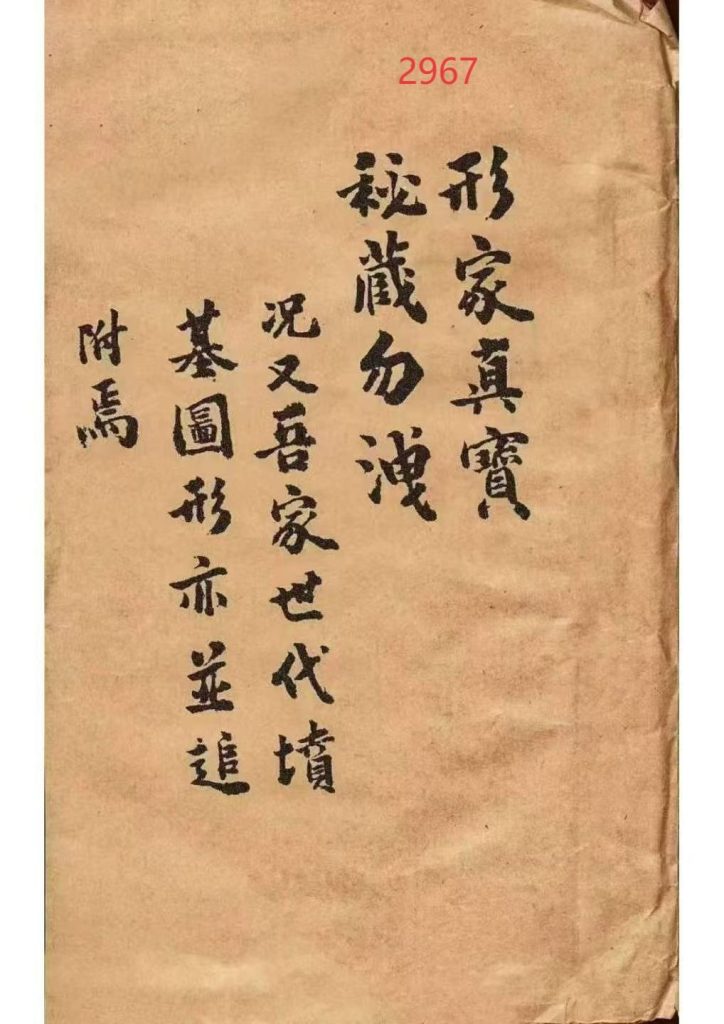 2967
形家真寶
秘藏勿洩
况又吾家世代墳
墓圖形亦並追
附焉